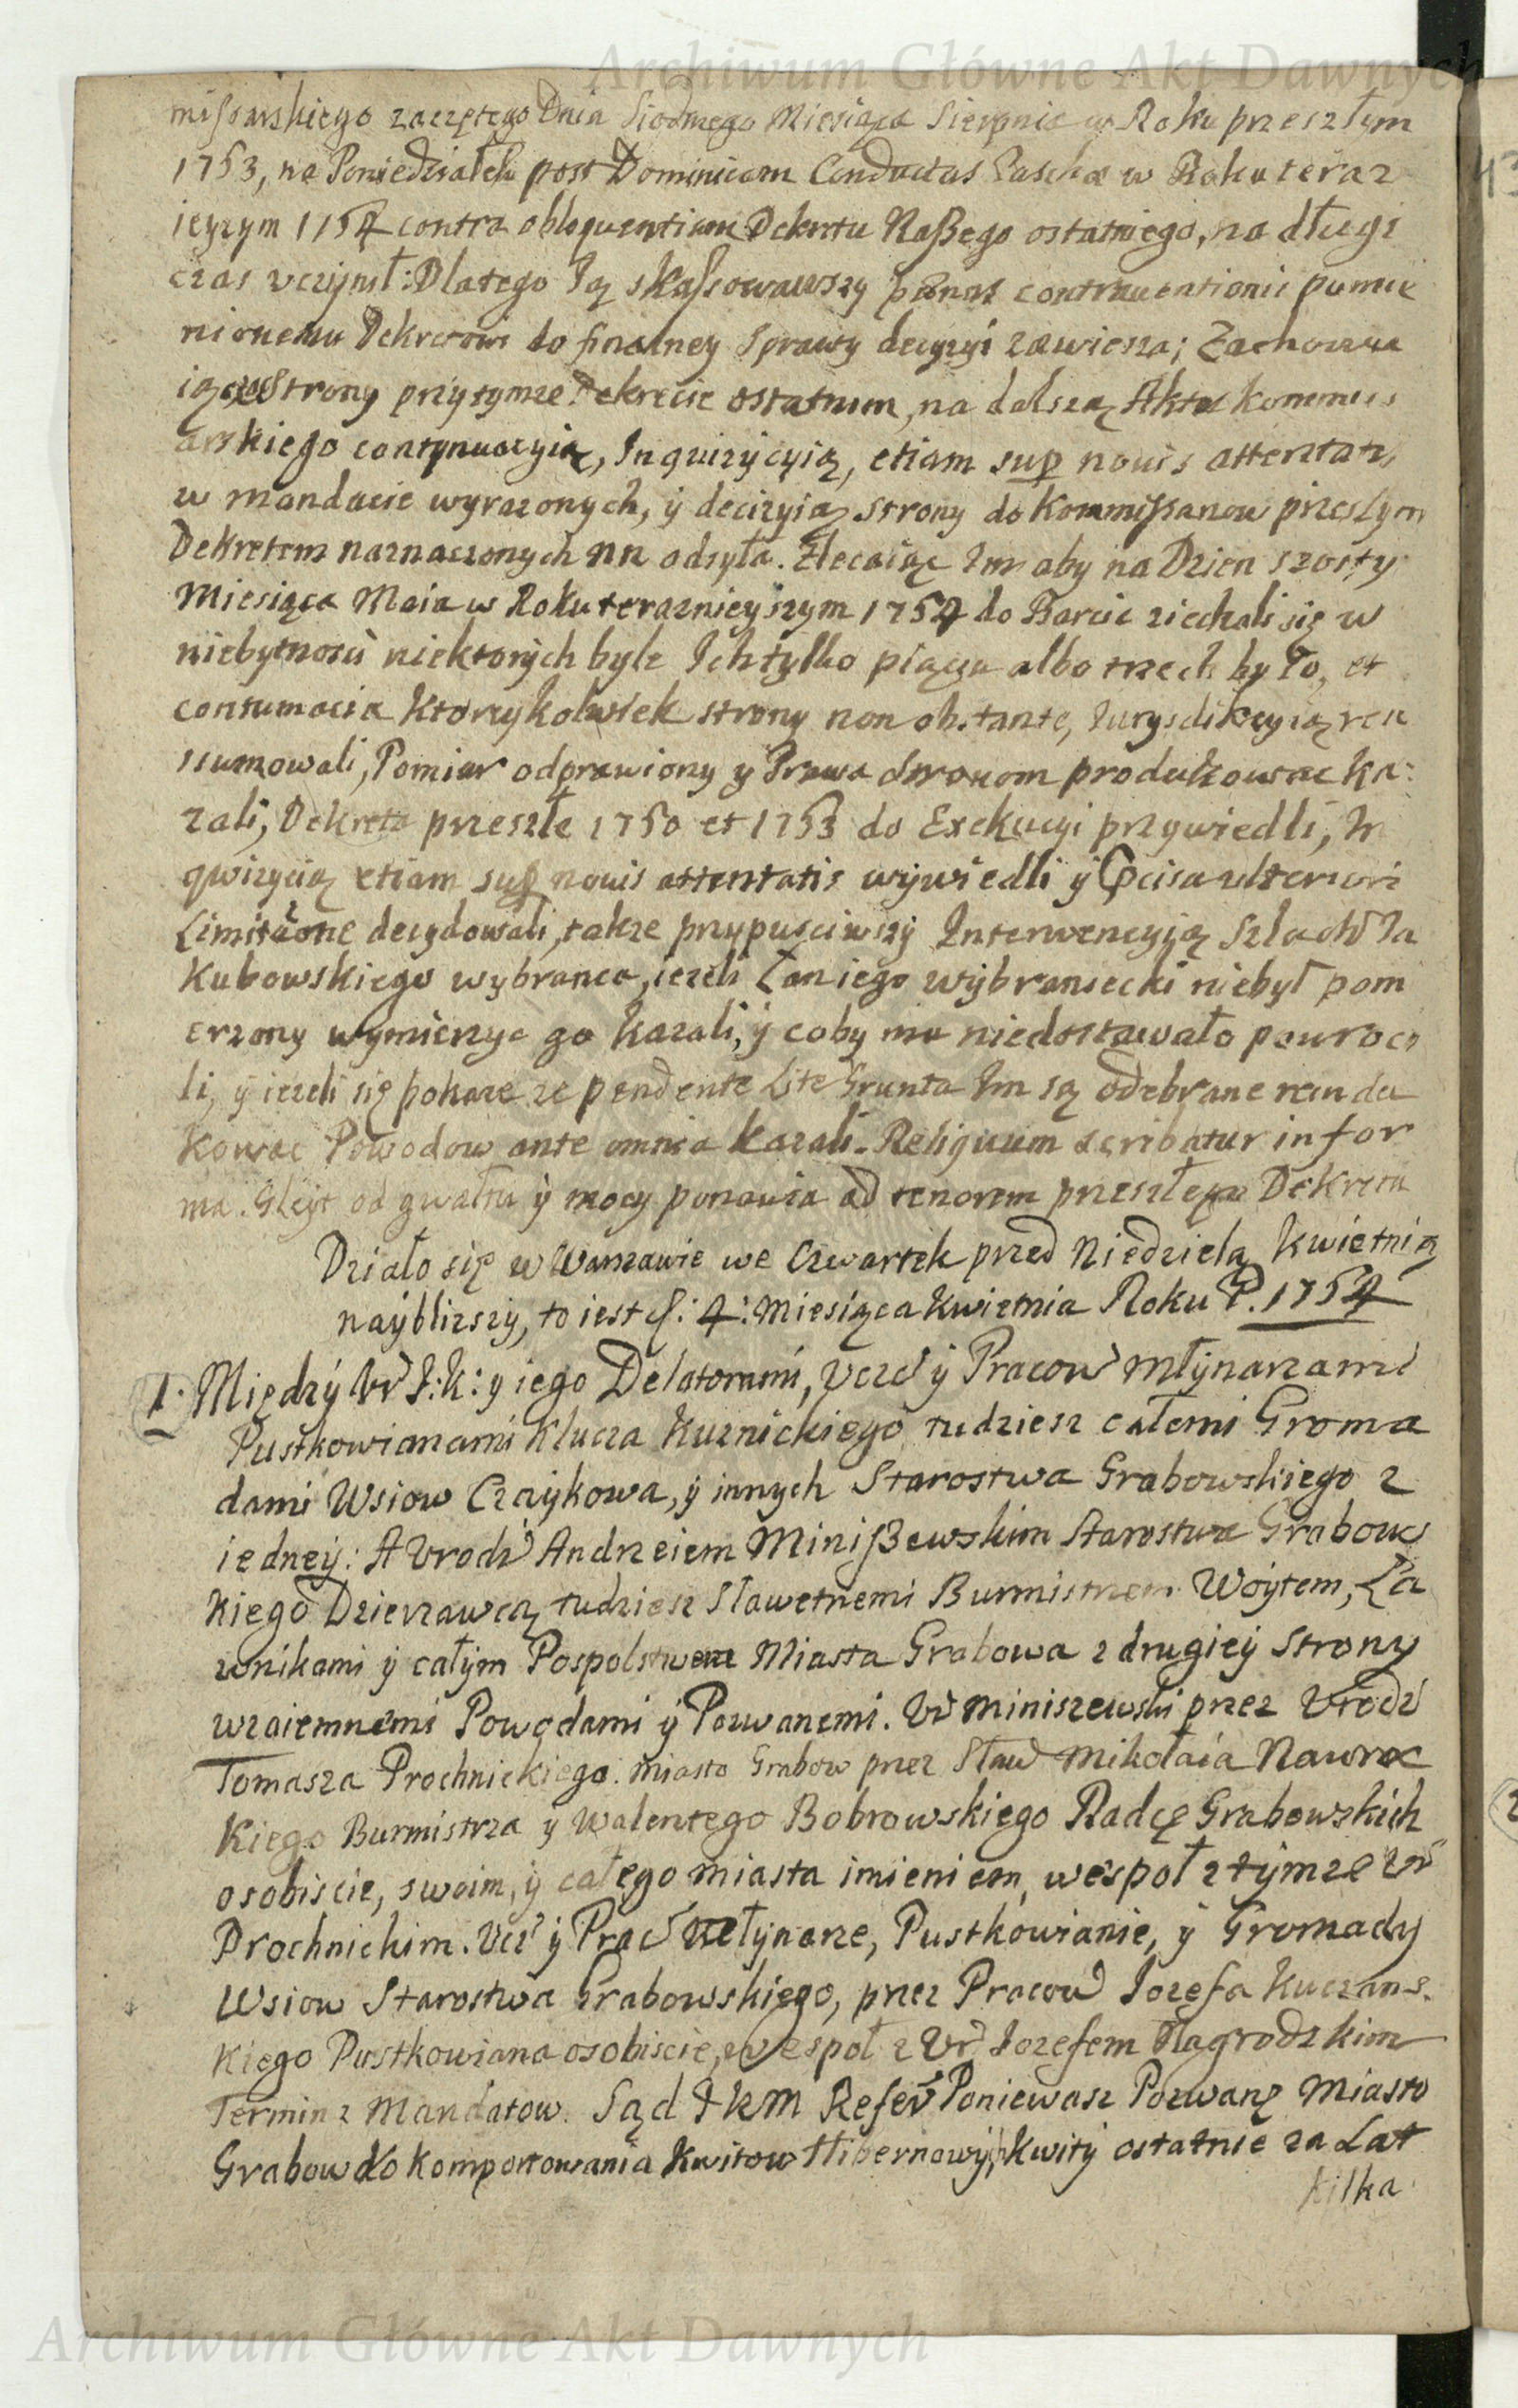 Archiwum Główne Akt Dawnych
missarskiego zaczętego Dnia Siodmego Miesiąca Sierpnia w Roku przeszłym
1753, na Poniedziałek post Dominicam Conductus Paschæ w Roku teraz
ieyszym 1754 contra obloquentiam Dekretu Naßego ostatniego, na długi
czas uczynił: Dlatego Ią skassowawszy contrauentionis pomie
nionemu Dekretowi do finalney Sprawy decyzyi zawiesza; Zachowu
iąc Strony przytymze Dekrecie ostatnim, na dalszą Aktu Kommiss
arskiego contynuacyią, Inquizycyią, etiam sup nouis attentatis
w mandacie wyrazonych, ÿ decizyią strony do Kommissarzow przeszłym
Dekretem naznaczonych nn odsyła. Zlecaiąc Im aby na Dzien szosty
Miesiąca Maia w Roku teraznieyszym 1754 do Barcic ziechali się w
niebytnosci niektorych byle Ich tylko piąciu albo trzech było, et
contumacia ktoreykolwiek strony non obstante, Iurysdikcyią rea
ssumowali, Pomiar odprawiony y Prawa Stronom produkowac ka:
zali, Dekreta przeszłe 1750 et 1753 do Exekucyi przywiedli, In
qwizycią etiam sup nouis attentatis wywiedli ÿ Pcisa ulteriori
Limitãone decydowali, takze przypuściwszÿ Interwencyią Szlach Ia
kubowskiego wybranca, iezeli Łan iego wÿbraniecki niebył pom
erzony wymierzyc go kazali, ÿ coby mu niedostawało powroci
li, ÿ iezeli się pokaze ze pendente Lite Grunta Im są odebrane reindu
kowac Powodow ante omnia kazali. Reliquum scribatur in for
ma. Gleyt od gwałtu ÿ mocy ponawia ad tenorem przeszłego Dekretu
Działo się w Warszawie we Czwartek przed Niedzielą Kwietnią
nayblizszÿ, to iest d: 4: Miesiąca Kwietnia Roku P. 1754
1. Międzÿ Ur I: K: y iego Delatorami, Ucz ÿ Pracow Młynarzami
Pustkowianami Klucza Kuznickiego tudziesz całemi Groma
dami Wsiow Czaykowa, ÿ innych Starostwa Grabowskiego z
iedneÿ: A Urodz Andrzeiem Minißewskim Starostwa Grabows
kiego Dzierzawcą tudziesz Sławetnemi Burmistrzem Woytem, Ła
wnikami ÿ całÿm Pospolstwem Miasta Grabowa z drugieÿ Strony
wzaiemnemi Powodami ÿ Pozwanemi. Ur Miniszewski przez Urodz
Tomasza Prochnickiego. Miasto Grabow przez Sław Mikołaia Nawroc
kiego Burmistrza ÿ Walentego Bobrowskiego Radcę Grabowskich
osobiscie, swoim, ÿ całego miasta imieniem, wespoł z tÿmze Ur
Prochnickim. Ucz ÿ Prac Młynarze, Pustkowianie, ÿ Gromady
Wsiow Starostwa Grabowskiego, przez Pracow Iozefa Kuczans.
kiego Pustkowiana osobiscie, wespoł z Ur Iozefem Nagrodzkim
Termin z Mandatow. Sąd I K M Refer Poniewasz Pozwane Miasto
Grabow do komportowania Kwitow Hibernowych, kwitÿ ostatnie za Lat
kilka
Archiwum Główne Akt Dawnych